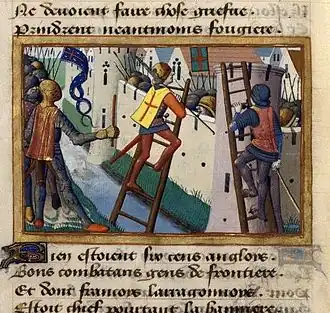 Ne deuoient faire chose griefue
Prindrent neantmoins fougiere.
Bien estoient six cens anglois.
Bons combatans gens de frontiere.
Et dont francois larragonnois.
Estoit chief pourtant la banniere.